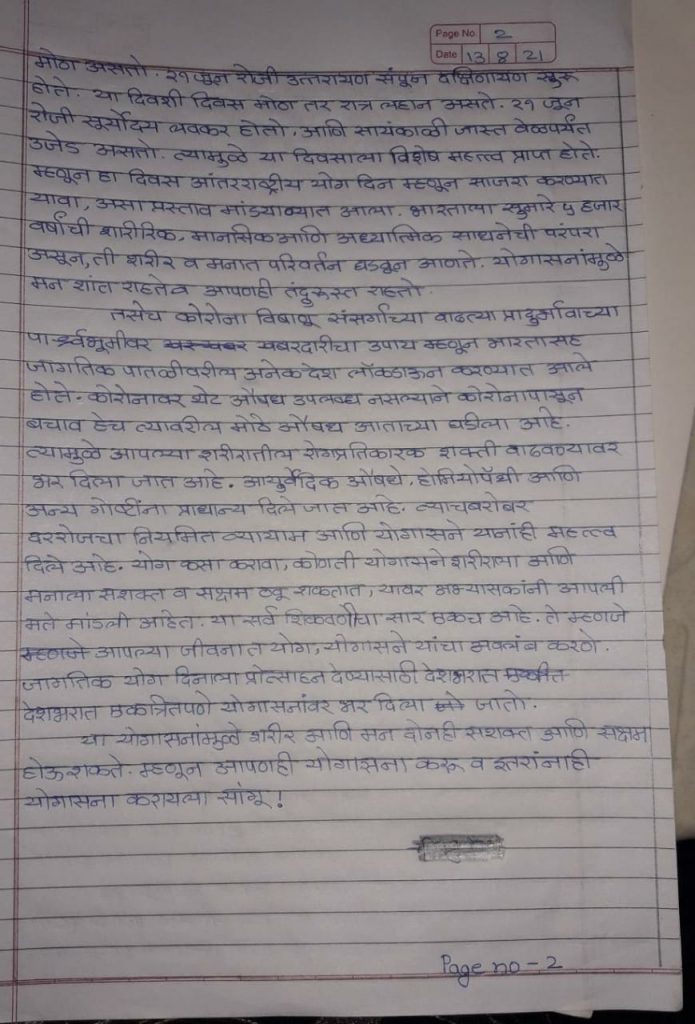 Page No. 2
Date 13 8 21
मोठा असतो. २१ जून रोजी उत्तरायण संपून दक्षिणायण सुरू
होते. या दिवशी दिवस मोठा तर रात्र लहान असते. २१ जून
रोजी सूर्योदय लवकर होतो, आणि सायंकाळी जास्त वेळपर्यंत
उजेड असतो. त्यामुळे या दिवसाला विशेष महत्त्व प्राप्त होते.
म्हणून हा दिवस आंतरराष्ट्रीय योग दिन म्हणून साजरा करण्यात
यावा, असा प्रस्ताव मांडण्यात आला. भारताला सुमारे ५ हजार
वर्षांची शारीरिक, मानसिक आणि अध्यात्मिक साधनेची परंपरा
असून, ती शरीर व मनात परिवर्तन घडवून आणते. योगासनांमुळे
मन शांत राहते व आपणही तंदुरुस्त राहतो.
तसेच कोरोना विषाणू संसर्गाच्या वाढत्या प्रादुर्भावाच्या
पार्श्वभूमीवर खबरदारीचा उपाय म्हणून भारतासह
जागतिक पातळीवरील अनेक देश लॉकडाऊन करण्यात आले
होते. कोरोनावर थेट औषध उपलब्ध नसल्याने कोरोनापासून
बचाव हेच त्यावरील मोठे औषध आताच्या घडीला आहे.
त्यामुळे आपल्या शरीरातील रोगप्रतिकारक शक्ती वाढवण्यावर
भर दिला जात आहे. आयुर्वेदिक औषधे, होमियोपॅथी आणि
अन्य गोष्टींना प्राधान्य दिले जात आहे. त्याचबरोबर
दररोजचा नियमित व्यायाम आणि योगासने यांनाही महत्त्व
दिले आहे. योग कसा करावा, कोणती योगासने शरीराला आणि
मनाला सशक्त व सक्षम ठेवू शकतात, यावर अभ्यासकांनी आपली
मते मांडली आहेत. या सर्व शिकवणीचा सार एकच आहे. ते म्हणजे
म्हणजे आपल्या जीवनात योग, योगासने यांचा अवलंब करणे.
जागतिक योग दिनाला प्रोत्साहन देण्यासाठी देशभरात
देशभरात एकत्रितपणे योगासनांवर भर दिला जातो.
या योगासनांमुळे शरीर आणि मन दोनही सशक्त आणि सक्षम
होऊ शकते. म्हणून आपणही योगासना करू व इतरांनाही
योगासना करायला सांगू!
Page no - 2